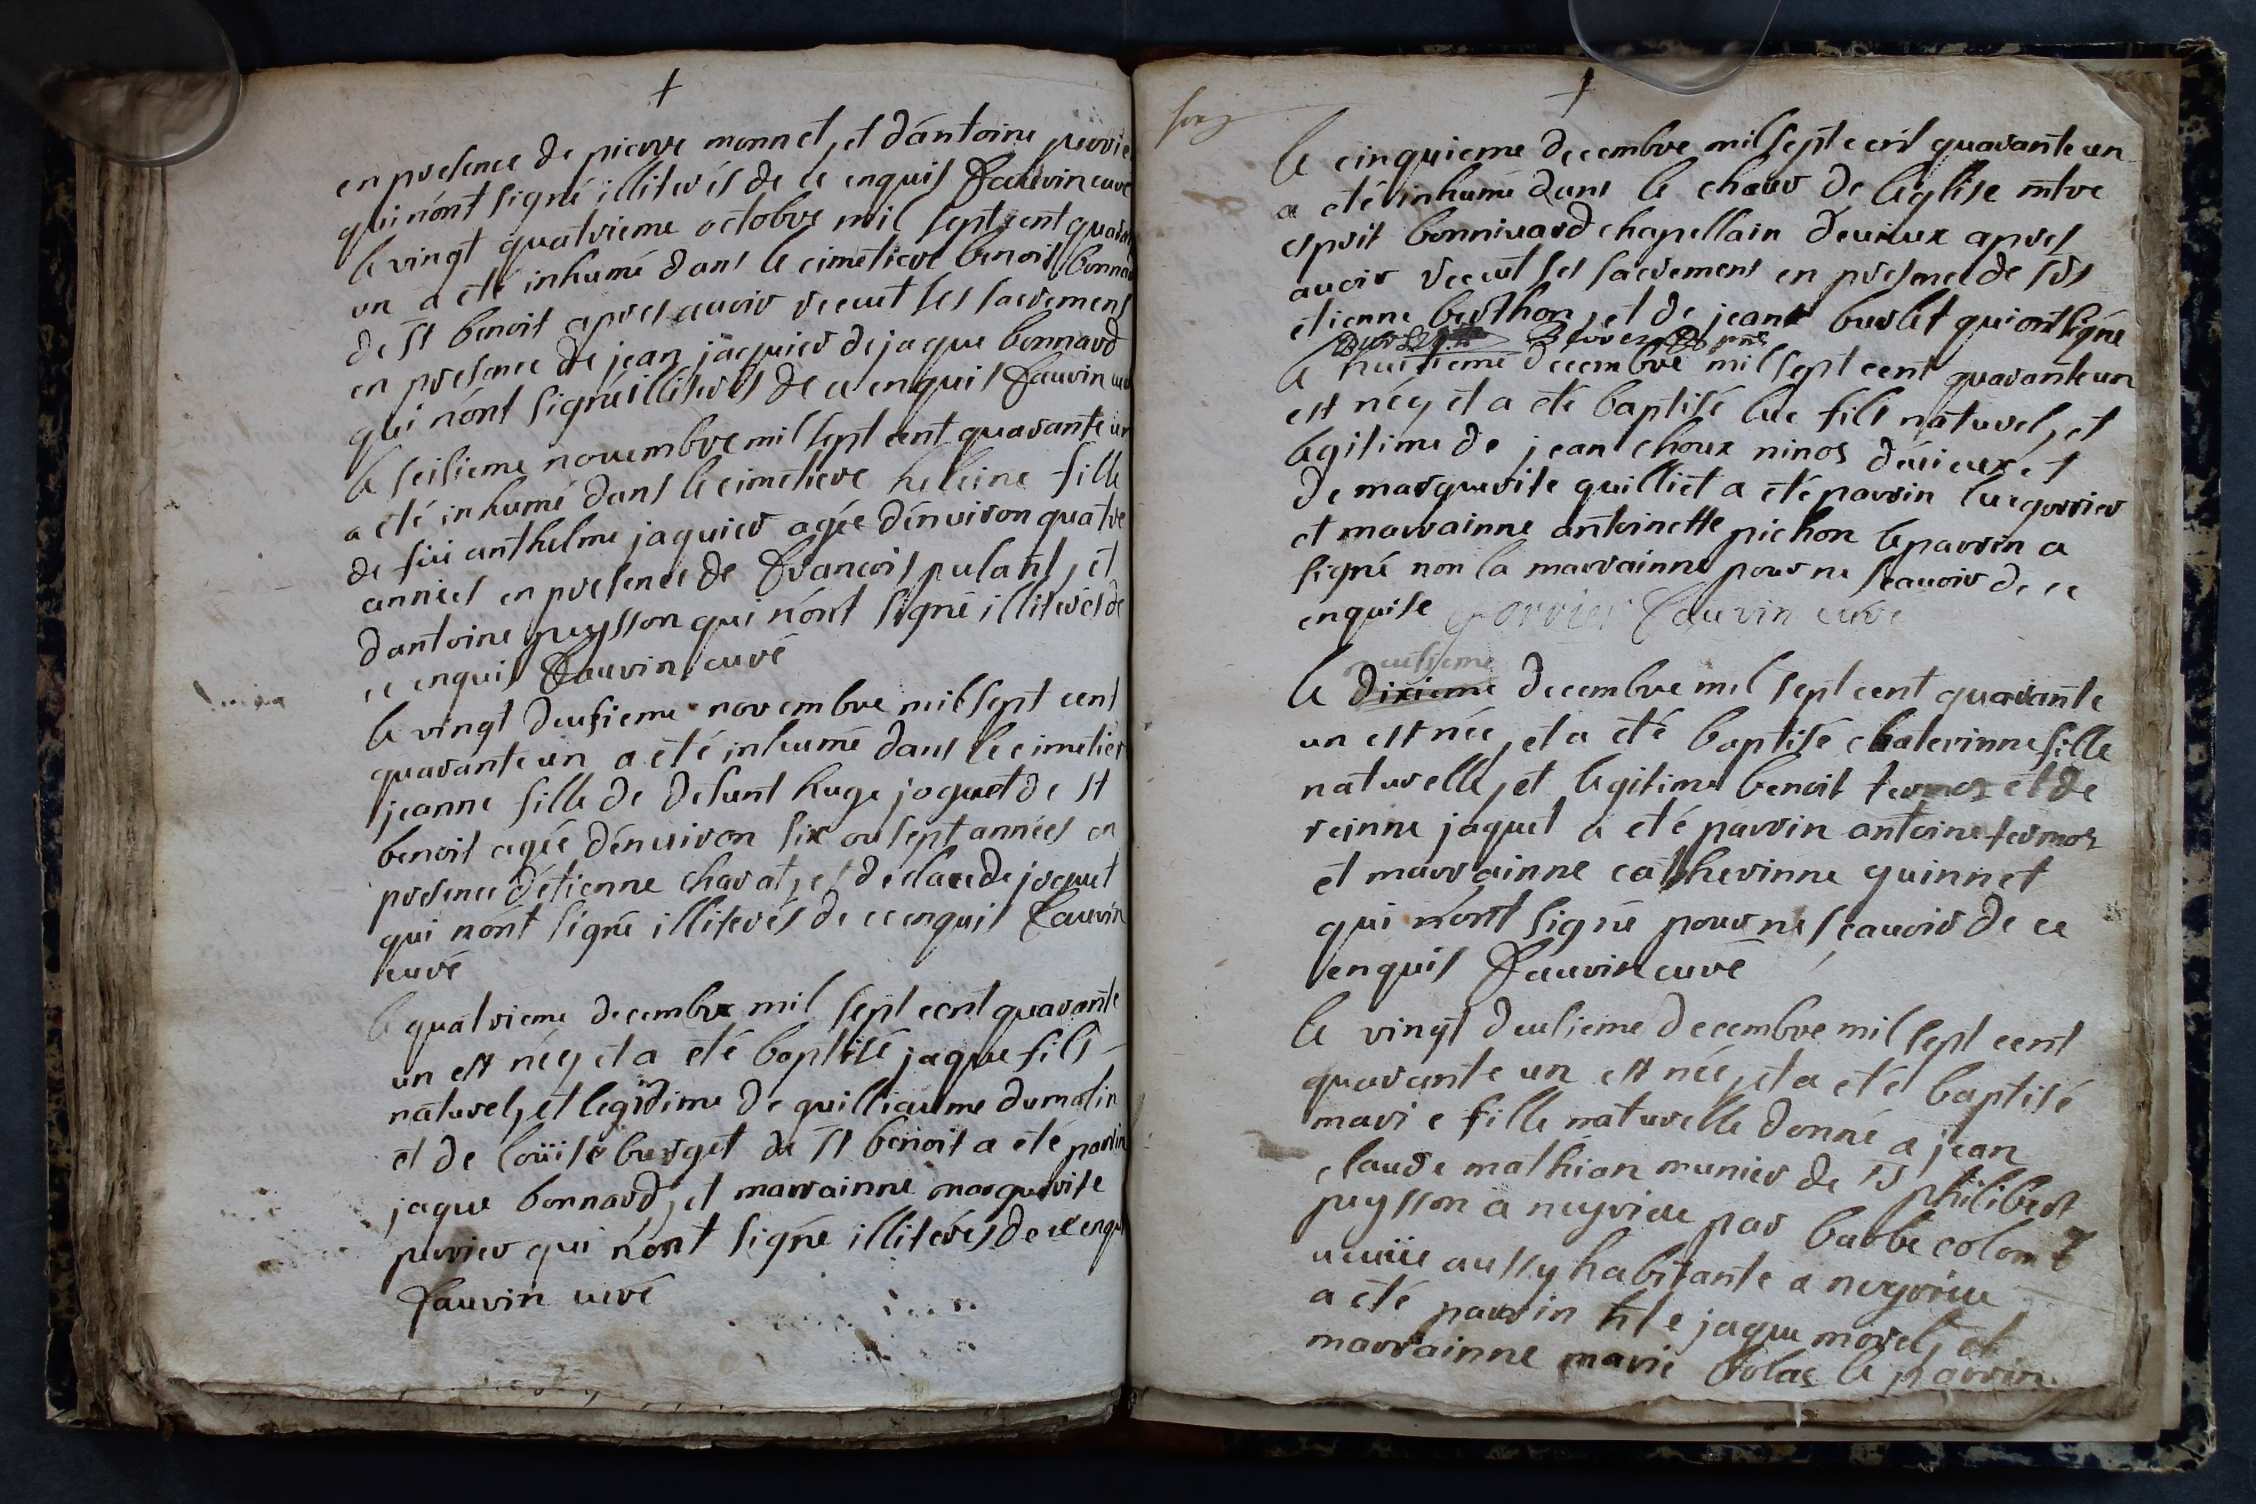 en presence de pierre monnet, et dántoine perrie
qui nónt signé illiterés de ce enquis Fauvin curé
le vingt quatrieme octobre mil sept cent quaran
un a eté inhumé dans le cimetiere benoit bonnar
de st benoit apres avoir receut ses sacremens
en presence de jean jaquier de jaque bonnard
qui nónt signé illiterés de ce enquis Fauvin cur
le seisieme novembre mil sept cent quarante un
a eté inhumé dans le cimetiere heleine fille
de feu anthelme jaquier agée dénviron quatre
années en presence de francois pulant, et
dantoine peysson qui nónt signé illiterés de
ce enquis Fauvin curé
le vingt deusieme novembre mil sept cent
quarante un a eté inhumé dans le cimetier
jeanne fille de defunt huge joquet de st
benoit agée dénviron six ou sept années en
presence détienne charat, et de claude joquet
qui nónt signé illiterés de ce enquis Fauvin
curé
le quatrieme decembre mil sept cent quarante
un est néy et a eté baptisé jaque fils
naturel, et legidime de guilliaume dumolin
et de loüise burget de st benoit a eté parrin
jaque bonnard, et marrainne marguerite
perrier qui nónt signé illiterés de ce enqu
Fauvin curé
le cinquieme decembre mil sept cent quarante un
a eté inhumé dans le chœur de léglise mtre
esprit bonnivard chapellain deuieux apres
avoir receut ses sacrements en presence de srs
etienne berthon, et de jean burlet qui ont signé
le huitieme decembre mil sept cent quarante un
est néy et a eté baptisé luc fils naturel, et
legitime de jean choux ninos deuieux et
de marguerite guilliet a eté parrin luc gorrier
et marrainne antoinette pichon le parrin a
signé non la marrainne pour ne scavoir de ce
enquise gorrier Fauvin curé
neufieme
le dixieme decembre mil sept cent quarante
un est née, et a eté baptisé chaterinne fille
naturelle, et legitime benoit termoz et de
reinne jaquet a eté parrin antoine termoz
et marrainne catherinne guinnet
qui nónt signé pour ne scavoir de ce
enquis Fauvin curé
le vingt deusieme decembre mil sept cent
quarante un est née, et a eté baptisé
marie fille naturelle donné a jean
claude mathian munier de st philibert
peysson a neyrieu par barbe colom
veuüe aussy habitante a neyrieu
a eté parrin jaque morel, et
marrainne marie bolas le parrin